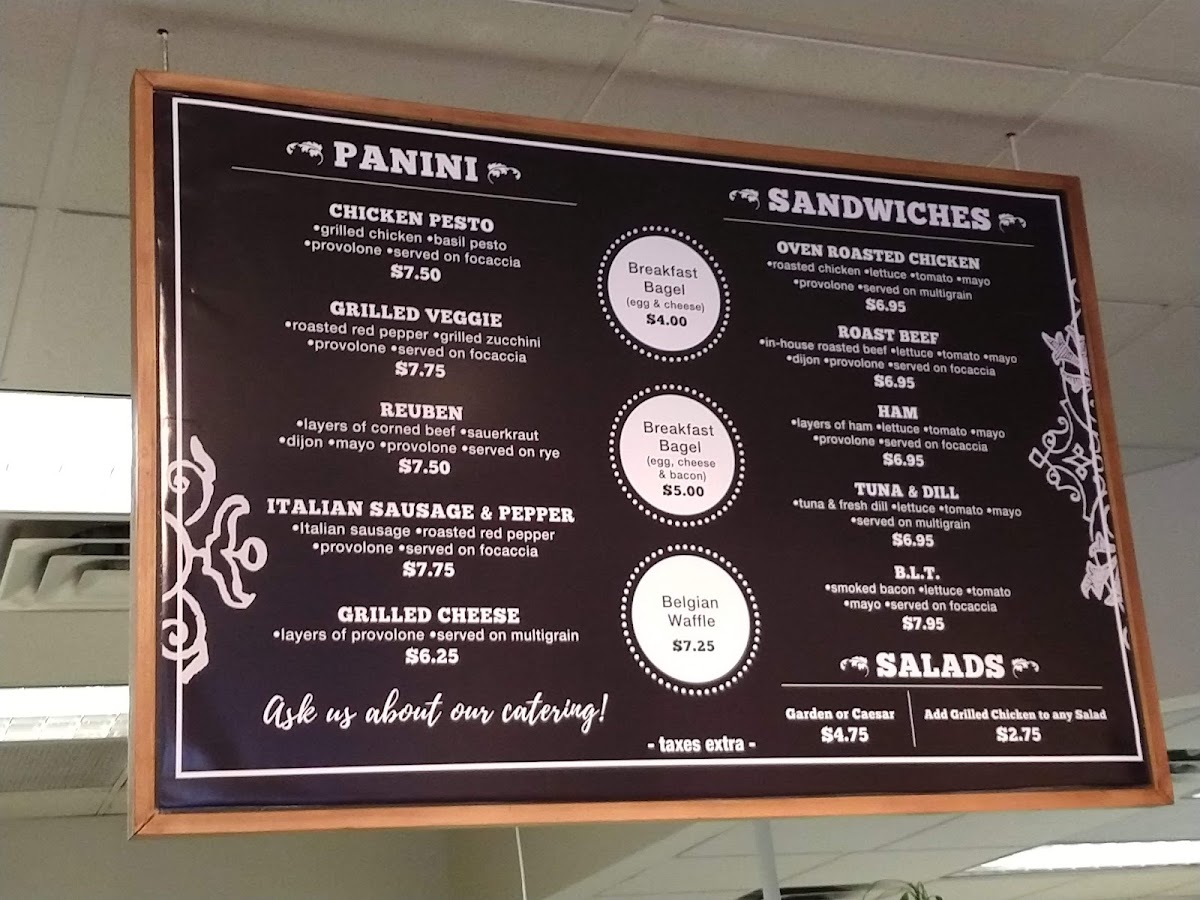 PANINI
CHICKEN PESTO
•grilled chicken •basil pesto
•provolone •served on focaccia
$7.50
GRILLED VEGGIE
•roasted red pepper •grilled zucchini
•provolone •served on focaccia
$7.75
REUBEN
•layers of corned beef •sauerkraut
•dijon •mayo •provolone •served on rye
$7.50
ITALIAN SAUSAGE & PEPPER
•Italian sausage •roasted red pepper
•provolone •served on focaccia
$7.75
GRILLED CHEESE
•layers of provolone •served on multigrain
$6.25
Ask us about our catering!
Breakfast
Bagel
(egg & cheese)
$4.00
Breakfast
Bagel
(egg, cheese
& bacon)
$5.00
Belgian
Waffle
$7.25
- taxes extra -
SANDWICHES
OVEN ROASTED CHICKEN
•roasted chicken •lettuce •tomato •mayo
•provolone •served on multigrain
$6.95
ROAST BEEF
•in-house roasted beef •lettuce •tomato •mayo
•dijon •provolone •served on focaccia
$6.95
HAM
•layers of ham •lettuce •tomato •mayo
•provolone •served on focaccia
$6.95
TUNA & DILL
•tuna & fresh dill •lettuce •tomato •mayo
•served on multigrain
$6.95
B.L.T.
•smoked bacon •lettuce •tomato
•mayo •served on focaccia
$7.95
SALADS
Garden or Caesar
$4.75
Add Grilled Chicken to any Salad
$2.75